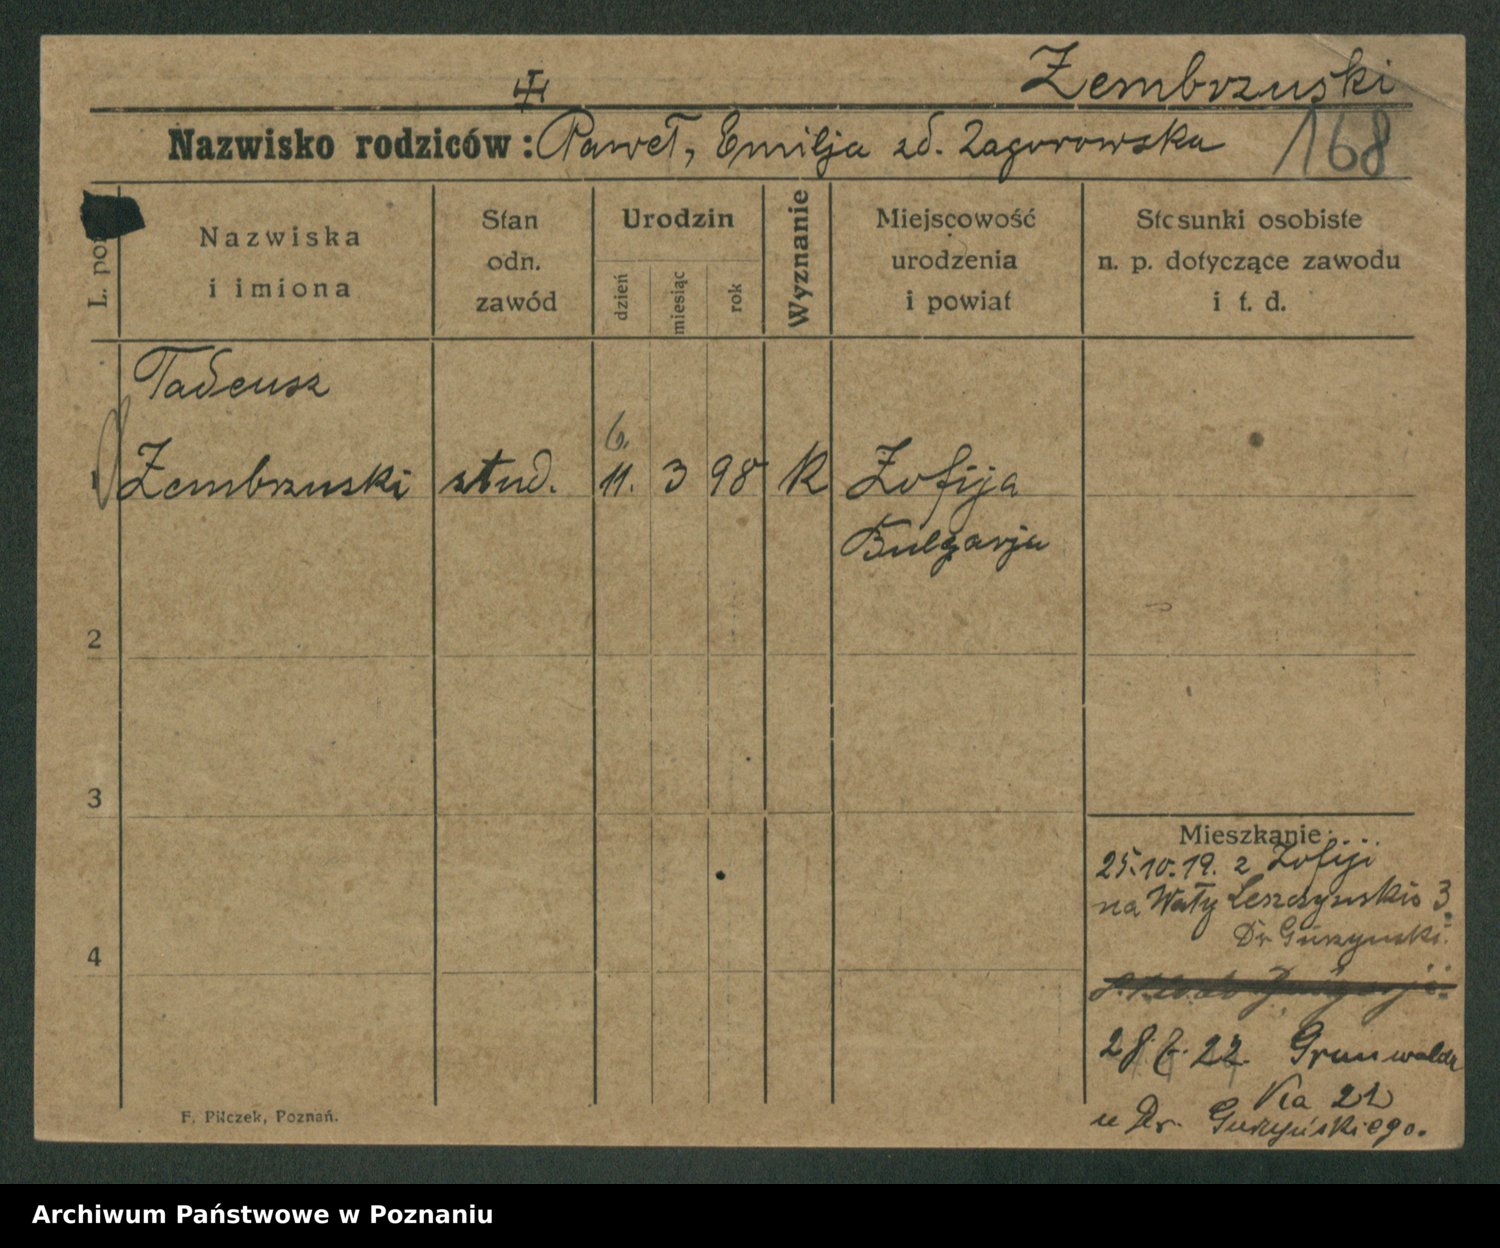 Zembrzuski
Nazwisko rodziców: Paweł, Emilja zd. Zagorowska 168
L. po
Nazwiska
i imiona
Stan
odn.
zawód
Urodzin
dzień
miesiąc
rok
Wyznanie
Miejscowość
urodzenia
i powiat
Stosunki osobiste
n. p. dotyczące zawodu
i t. d.
Tadeusz
6.
1 Zembrzuski stud. 11. 3 98 K Zofija
Bulgarja
2
3
4
Mieszkanie:
25.10.19. z Zofji
na Wały Leszczyńskie 3
Dr
28. 6. 22. Grunwaldz
ka 21
u Dr.
F. Pilczek, Poznań.
Archiwum Państwowe w Poznaniu